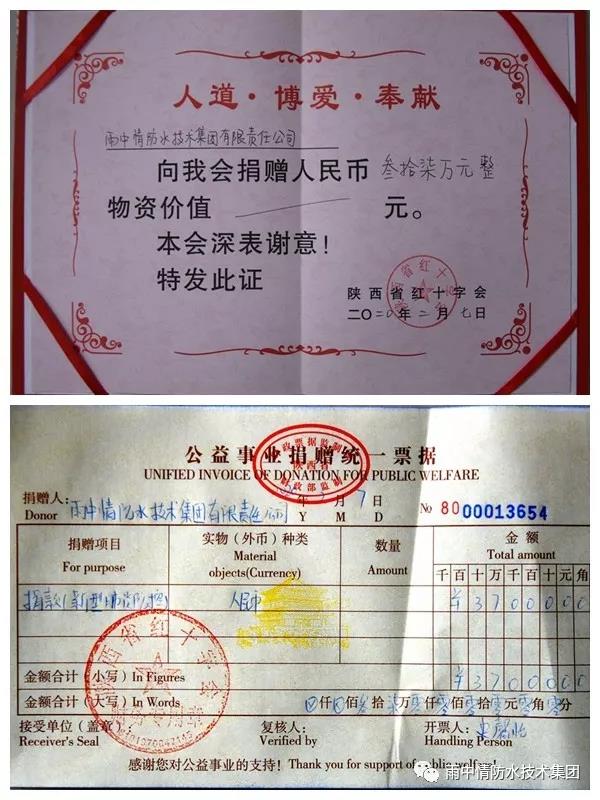 人道·博爱·奉献
雨中情防水技术集团有限责任公司
向我会捐赠人民币 叁拾柒万元整
物资价值 元。
本会深表谢意!
特发此证
陕西省红十字会
二〇二〇年二月七日
公益事业捐赠统一票据
UNIFIED INVOICE OF DONATION FOR PUBLIC WELFARE
捐赠人: 雨中情防水技术集团有限责任公司 年 月 7 日
Donor Y M D № 8000013654
捐赠项目 实物(外币)种类 数量 金额
For purpose Material objects(Currency) Amount Total amount
千 百 十 万 千 百 十 元 角
捐款(新型 人民币 ¥ 3 7 0 0 0 0 0
金额合计(小写)In Figures ¥ 3 7 0 0 0 0 0
金额合计(大写)In Words 仟 佰 叁 拾 柒 万 零 仟 零 佰 零 拾 零 元 零 角 零 分
接受单位(盖章): 复核人: 开票人:
Receiver's Seal Verified by Handling Person
感谢您对公益事业的支持! Thank you for support of public welfare!
雨中情防水技术集团